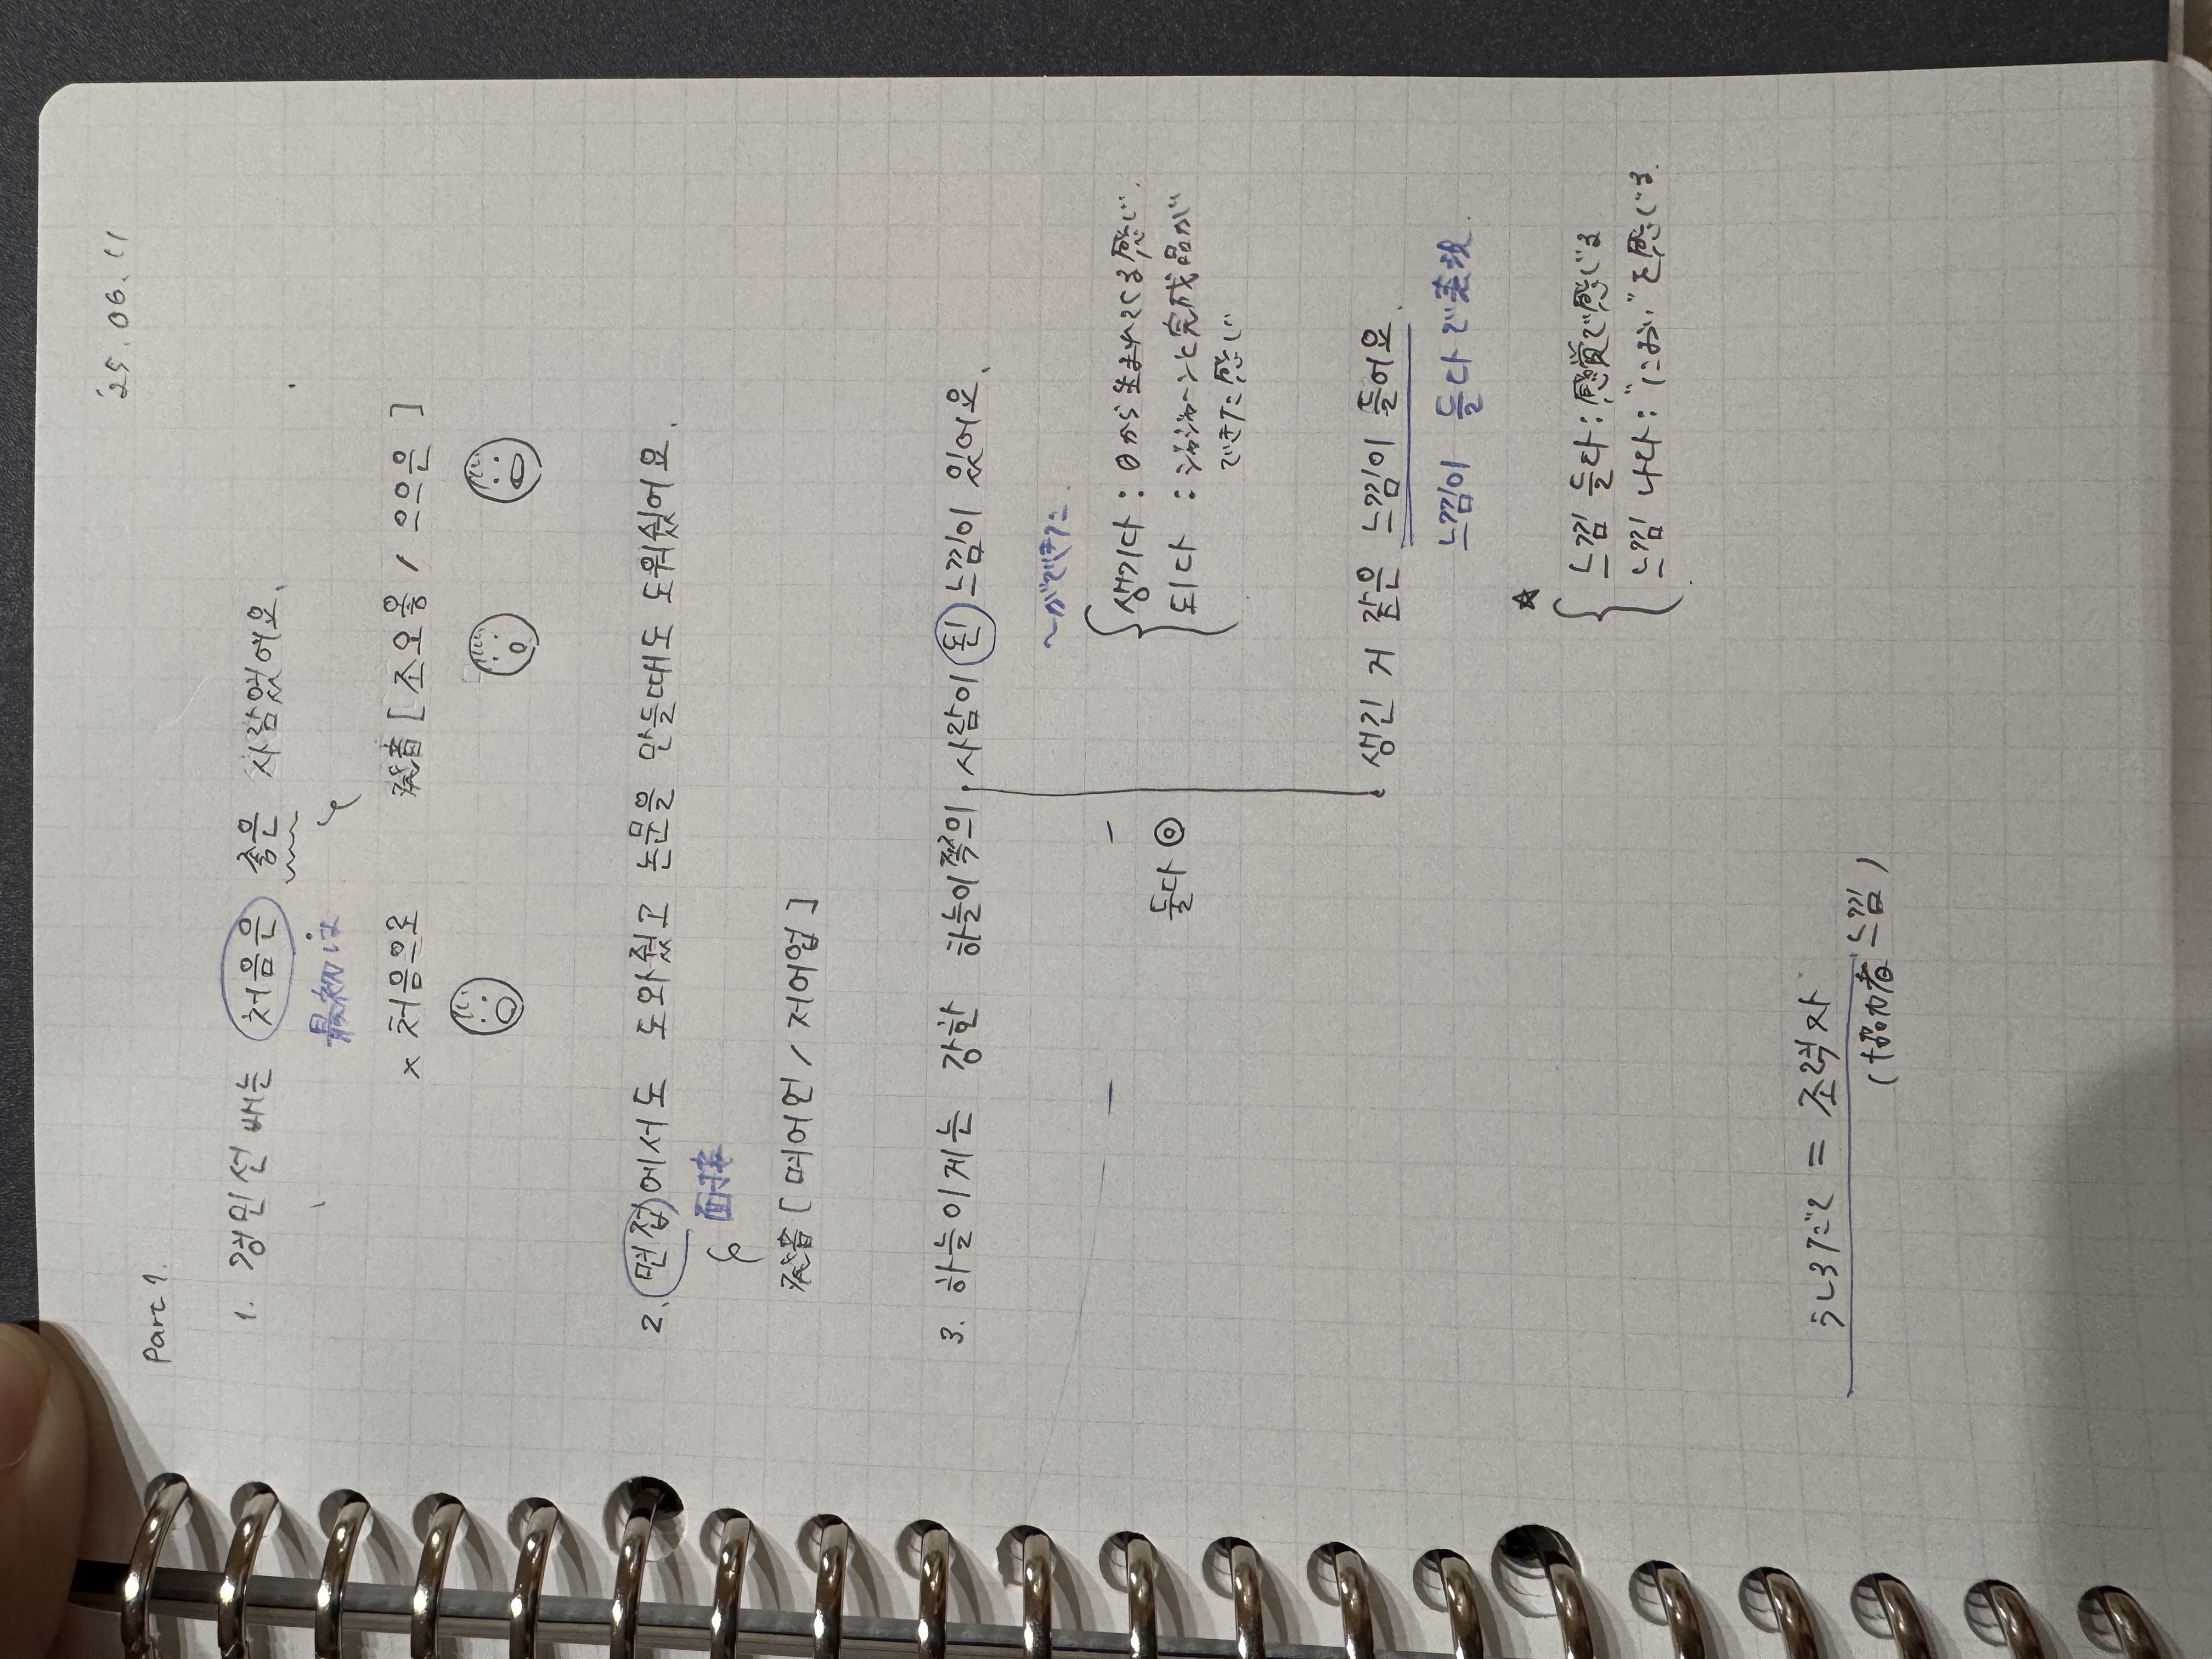 '25.06.11
Part 1.
1. 경민선배는 처음은 좋은 사람였어요.
最初は
× 처음으로 発音 [조오옹 / 으으은]
2. 면접에서도 도와줬고 논문을 만들때도 도워줬어요.
面接
発音 [며어언 / 저어업]
3. 하늘이게는 강한 하늘이쪽의 사람이 된 느낌이 있어요.
~ができた
생기다 : 0から生まれてくる感じ.
들다 ◎ 되다 : じわじわ~っと完成品が
できた感じ
생긴 거 같은 느낌이 들어요.
느낌이 들다で表現.
★ 느낌 들다 : 感覚で感じる
느낌 나다 : "におい"を感じる.
うしろだて = 조력자
(協力者 느낌)